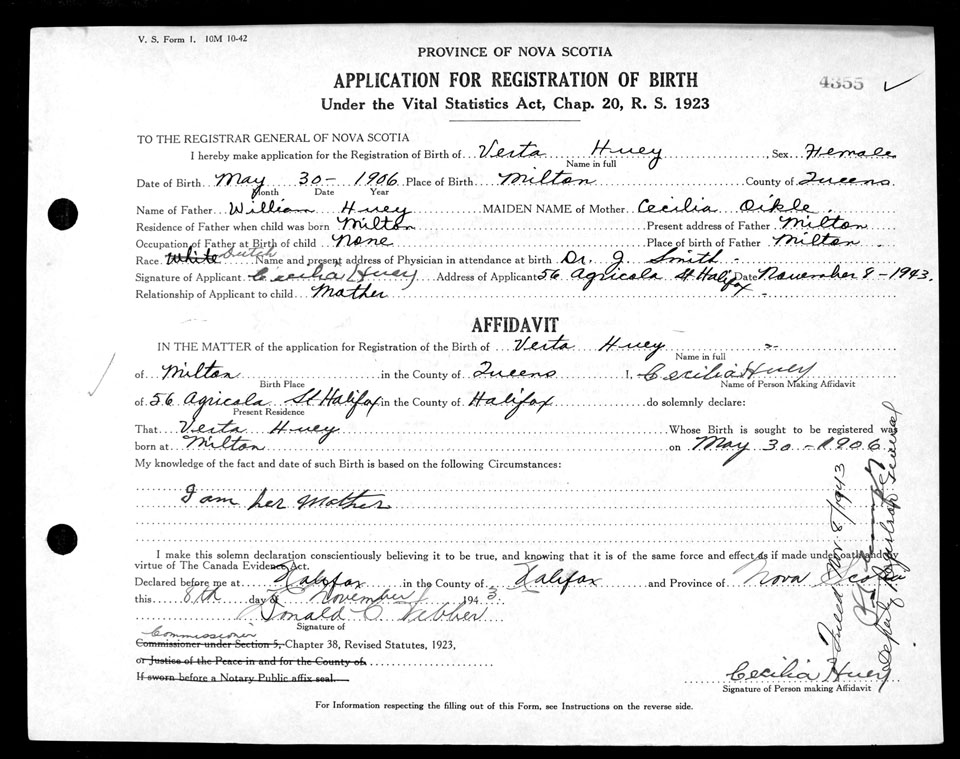 V. S. Form 1. 10M 10-42
PROVINCE OF NOVA SCOTIA
APPLICATION FOR REGISTRATION OF BIRTH
4355 ✓
Under the Vital Statistics Act, Chap. 20, R. S. 1923
TO THE REGISTRAR GENERAL OF NOVA SCOTIA
I hereby make application for the Registration of Birth of Vesta Huey, Sex Female
Name in full
Date of Birth May 30 - 1906 Place of Birth Milton County of Queens
Month Date Year
Name of Father William Huey MAIDEN NAME of Mother Cecilia Oikle
Residence of Father when child was born Milton Present address of Father Milton
Occupation of Father at Birth of child None Place of birth of Father Milton
Race White Dutch Name and present address of Physician in attendance at birth Dr. J Smith
Signature of Applicant Cecilia Huey Address of Applicant 56 Agricola St. Halifax Date November 8 - 1943.
Relationship of Applicant to child Mother
AFFIDAVIT
IN THE MATTER of the application for Registration of the Birth of Vesta Huey
Name in full
of Milton in the County of Queens I, Cecilia Huey
Birth Place Name of Person Making Affidavit
of 56 Agricola St Halifax in the County of Halifax do solemnly declare:
Present Residence
That Vesta Huey Whose Birth is sought to be registered was
born at Milton on May 30 - 1906
My knowledge of the fact and date of such Birth is based on the following Circumstances:
I am her Mother
I make this solemn declaration conscientiously believing it to be true, and knowing that it is of the same force and effect as if made under oath and by
virtue of The Canada Evidence Act.
Declared before me at Halifax in the County of Halifax and Province of Nova Scotia
this 8th day of November 1943.
Donald C. Webber
Signature of
Commissioner
Commissioner under Section 5, Chapter 38, Revised Statutes, 1923,
or Justice of the Peace in and for the County of
If sworn before a Notary Public affix seal.
Cecilia Huey
Signature of Person making Affidavit
For Information respecting the filling out of this Form, see Instructions on the reverse side.
Filed Nov. 8/1943
Deputy Registrar General